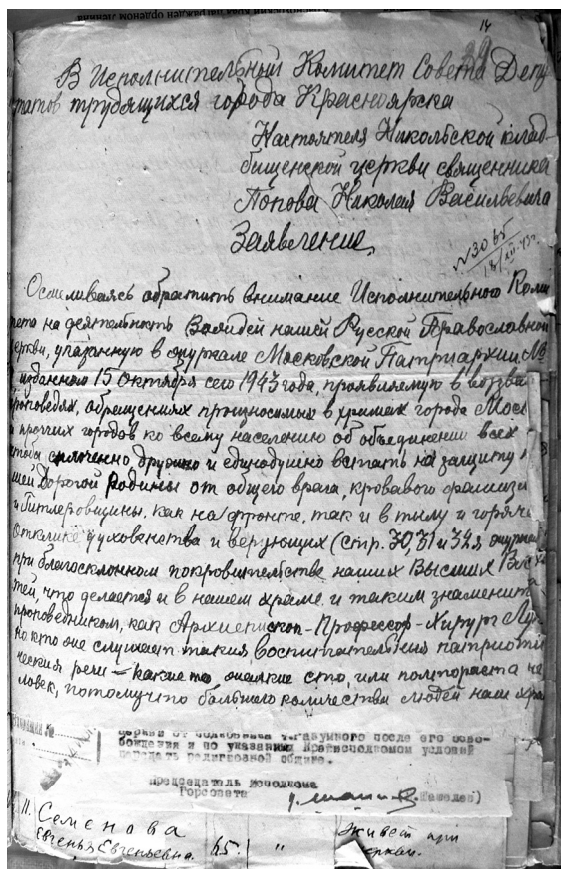 14
39
В Исполнительный Комитет Совета Депу-
татов трудящихся города Красноярска
Настоятеля Никольской клад-
бищенской церкви священника
Попова Николая Васильевича
Заявление.
N 3065
18/XII 43 г.
Осмеливаясь обратить внимание Исполнительного Коми
тета на деятельность Вождей нашей Русской Православной
Церкви, указанную в журнале Московской Патриархии №
изданном 15 Октября сего 1943 года, проявляемую в воззва
проповедях, обращениях произносимых в храмах города Мос
и прочих городов ко всему населению об объединении всех
чтобы сплоченно, дружно и единодушно встать на защиту н
шей Дорогой Родины от общего врага, кровавого фашизм
и Гитлеровщины, как на фронте, так и в тылу и горяче
отклике духовенства и верующих (стр. 30, 31 и 34я журнал
при благосклонном покровительстве наших Высших Влас
тей, что делается и в нашем храме и таким знаменита
проповедником, как Архиепископ-Профессор-Хирург Лук
но кто же слушает такия воспитательныя патриоти
ческия речи – какие то, жалкие сто, или полтораста че
ловек, потому что большего количества людей наш хра
церкви от
после его осво-
бождения и по указанным Крайисполкомом условий
передать религиозной общине.
Председатель исполкома
Горсовета
11. Семенова
Евгенья Евгеньевна.
65.
"
живет при
церкви.